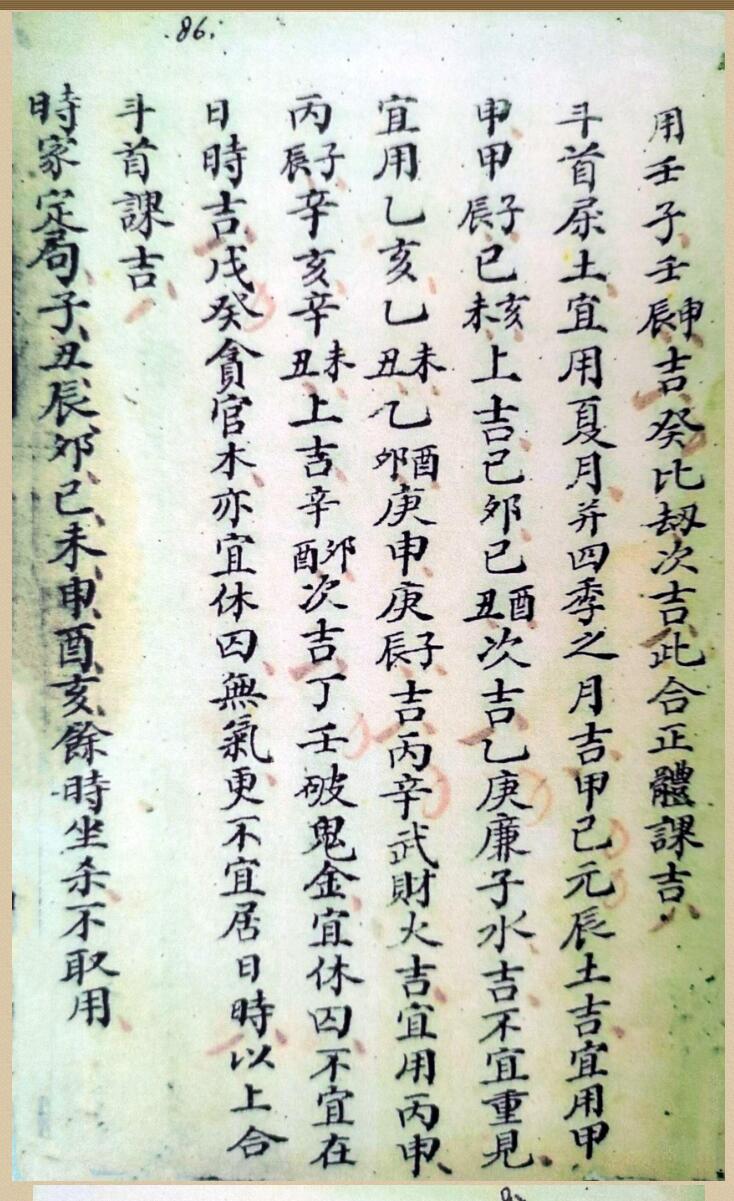 86.
用壬子壬申辰吉癸比刼次吉此合正體課吉
斗首屎土宜用夏月并四季之月吉甲己元辰土吉宜用甲
申甲子辰己亥未上吉己卯己酉丑次吉乙庚廉子水吉不宜重見
宜用乙亥乙未丑乙酉卯庚申庚子辰吉丙辛武財火吉宜用丙申
丙子辰辛亥辛未丑上吉辛卯酉次吉丁壬破鬼金宜休囚不宜在
日時吉戊癸貪官木亦宜休囚無氣更不宜居日時以上合
斗首課吉
時家定局子丑辰卯巳未申酉亥餘時坐杀不取用